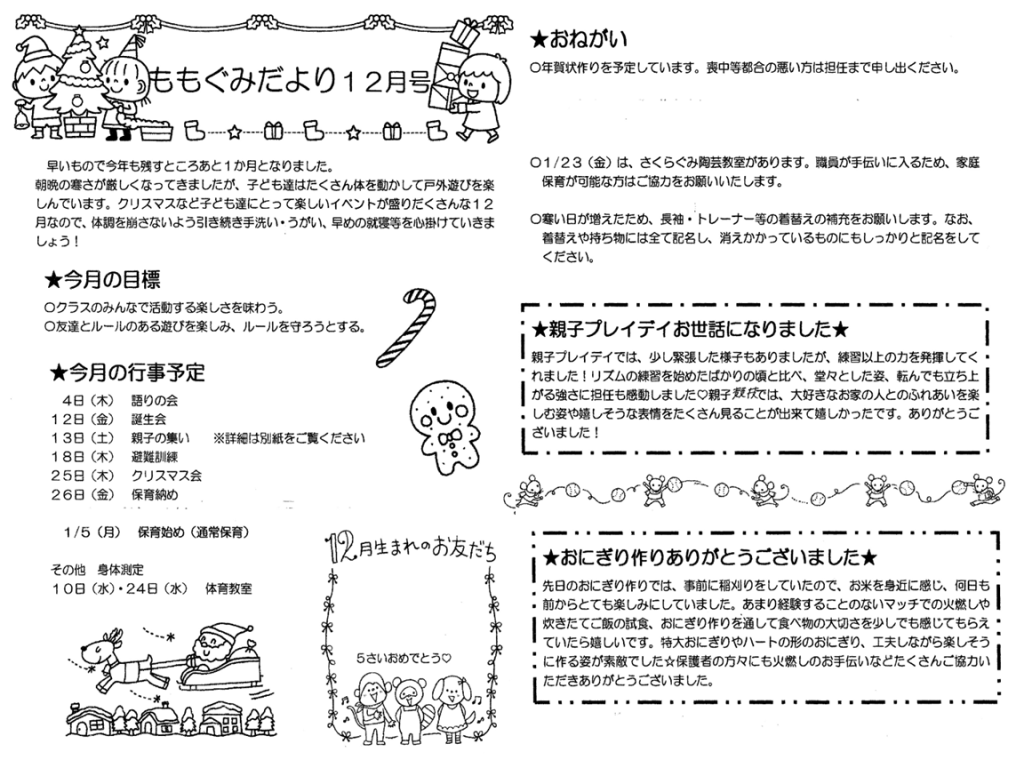 ももぐみだより１２月号
早いもので今年も残すところあと１か月となりました。
朝晩の寒さが厳しくなってきましたが、子ども達はたくさん体を動かして戸外遊びを楽
しんでいます。クリスマスなど子ども達にとって楽しいイベントが盛りだくさんな１２
月なので、体調を崩さないよう引き続き手洗い・うがい、早めの就寝等を心掛けていきま
しょう！
★今月の目標
○クラスのみんなで活動する楽しさを味わう。
○友達とルールのある遊びを楽しみ、ルールを守ろうとする。
★今月の行事予定
４日（木）　語りの会
１２日（金）　誕生会
１３日（土）　親子の集い　※詳細は別紙をご覧ください
１８日（木）　避難訓練
２５日（木）　クリスマス会
２６日（金）　保育納め
１/５（月）　保育始め（通常保育）
その他　身体測定
１０日（水）・２４日（水）　体育教室
12月生まれのお友だち
５さいおめでとう♡
★おねがい
○年賀状作りを予定しています。喪中等都合の悪い方は担任まで申し出ください。
○１/２３（金）は、さくらぐみ陶芸教室があります。職員が手伝いに入るため、家庭
保育が可能な方はご協力をお願いいたします。
○寒い日が増えたため、長袖・トレーナー等の着替えの補充をお願いします。なお、
着替えや持ち物には全て記名し、消えかかっているものにもしっかりと記名をして
ください。
★親子プレイデイお世話になりました★
親子プレイデイでは、少し緊張した様子もありましたが、練習以上の力を発揮してく
れました！リズムの練習を始めたばかりの頃と比べ、堂々とした姿、転んでも立ち上
がる強さに担任も感動しました♡親子競技では、大好きなお家の人とのふれあいを楽
しむ姿や嬉しそうな表情をたくさん見ることが出来て嬉しかったです。ありがとうご
ざいました！
★おにぎり作りありがとうございました★
先日のおにぎり作りでは、事前に稲刈りをしていたので、お米を身近に感じ、何日も
前からとても楽しみにしていました。あまり経験することのないマッチでの火燃しや
炊きたてご飯の試食、おにぎり作りを通して食べ物の大切さを少しでも感じてもらえ
ていたら嬉しいです。特大おにぎりやハートの形のおにぎり、工夫しながら楽しそう
に作る姿が素敵でした☆保護者の方々にも火燃しのお手伝いなどたくさんご協力い
ただきありがとうございました。